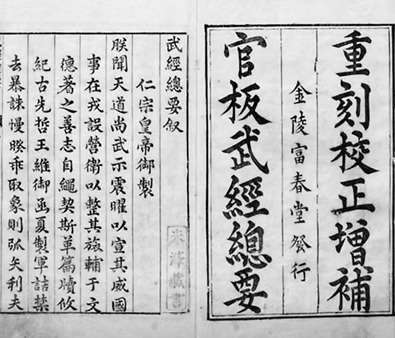 重刻校正增補
金陵富春堂發行
官板武經總要
武經總要叙
仁宗皇帝御製
朕聞天道尚武示震曜以宣其威國
事在戎設營衛以整其旅輔于文
德著之善志自繩契斯革篇牘攸
紀古先哲王維御函夏製軍詰禁
去暴誅慢睽乖取象則弧矢利夫
米澤藏書